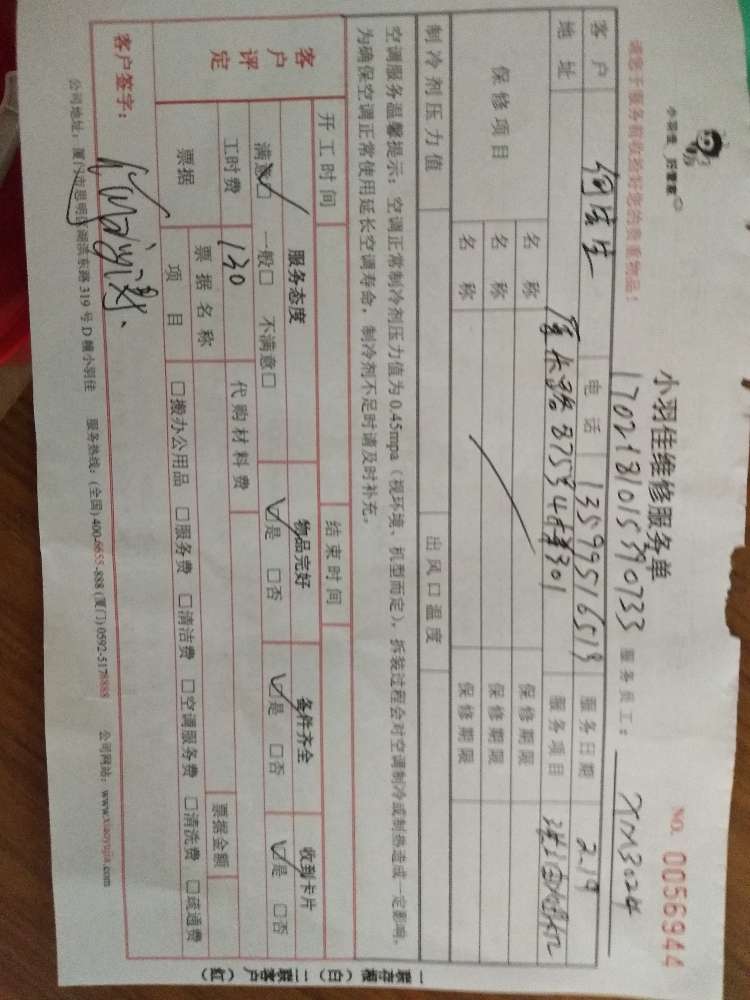 小羽佳 好管家
小羽佳维修服务单
NO. 0056944
请您于服务前收捡好您的贵重物品!
1702181015390733
服务员工: XM3024
客户 何先生 电话 13599516513 服务日期 2.19
地址 厦禾路875号 301 服务项目
保修项目 名称 保修期限
名称 保修期限
名称 保修期限
制冷剂压力值 出风口温度
空调服务温馨提示:空调正常制冷剂压力值为0.45mpa(视环境、机型而定),拆装过程会对空调制冷或制热造成一定影响。
为确保空调正常使用延长空调寿命,制冷剂不足时请及时补充。
开工时间 结束时间
客户评定 服务态度 物品完好 备件齐全 收到卡片
满意☑ 一般□ 不满意□ ☑是 □否 ☑是 □否 ☑是 □否
工时费 130 代购材料费
票据 票据名称 票据金额
项目 □搬办公用品 □服务费 □清洁费 □空调服务费 □清洗费 □疏通费
客户签字:
公司地址:厦门市思明区湖滨东路319号D幢小羽佳 服务热线:(全国)400-6655-888 (厦门)0592-5178888 公司网站:www.xiaoyujia.com
一联存根(白) 二联客户(红)